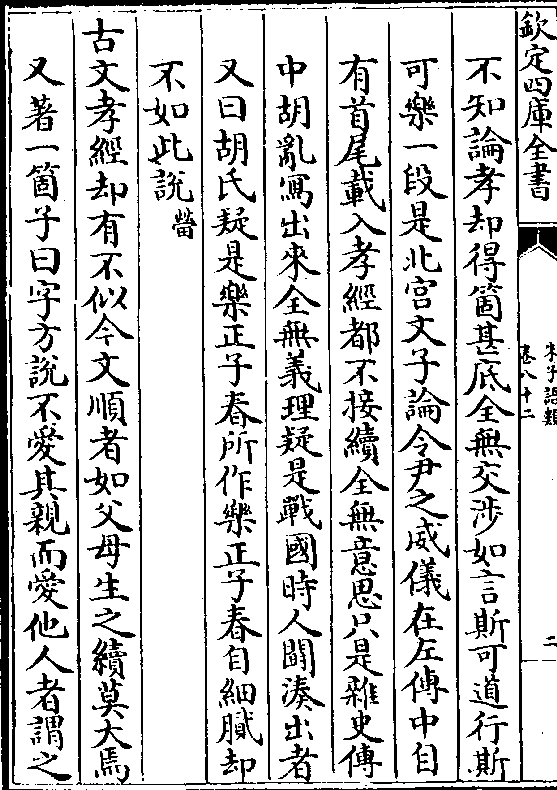 欽定四庫全書
朱子語類
卷八十二
二
不知論孝却得箇甚底全無交涉如言斯可道行斯
可樂一段是北宫文子論令尹之威儀在左傳中自
有首尾載入孝經都不接續全無意思只是雜史傳
中胡亂寫出來全無義理疑是戰國時人鬭湊出者
又曰胡氏疑是樂正子春所作樂正子春自細膩却
不如此說𦶜
古文孝經却有不似今文順者如父母生之續莫大焉
又著一箇子曰字方說不愛其親而愛他人者謂之